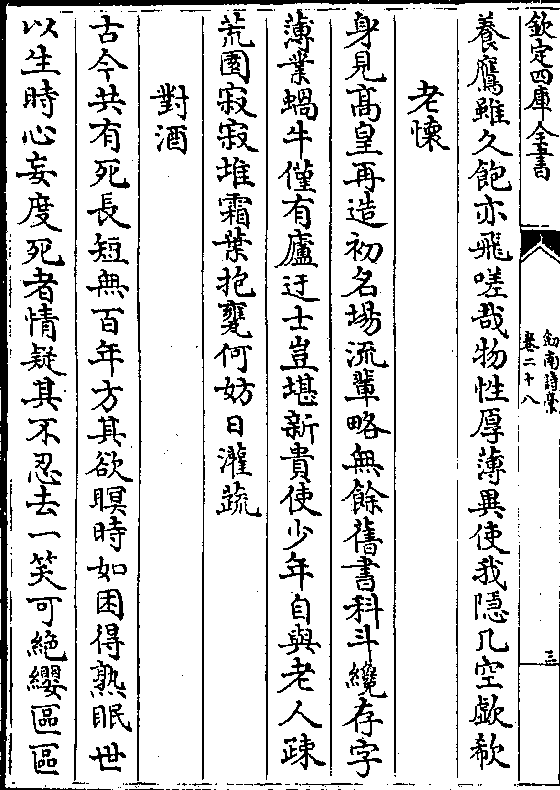 欽定四庫全書
劍南詩藁
卷二十八
三
養鷹雖久飽亦飛嗟哉物性厚薄異使我隱几空歔欷
老懷
身見髙皇再造初名場流輩略無餘舊書科斗纔存字
薄業蝸牛僅有廬迂士豈堪新貴使少年自與老人疎
荒園寂寂堆霜葉抱甕何妨日灌蔬
對酒
古今共有死長短無百年方其欲瞑時如困得熟眠世
以生時心妄度死者情疑其不忍去一笑可絶纓區區